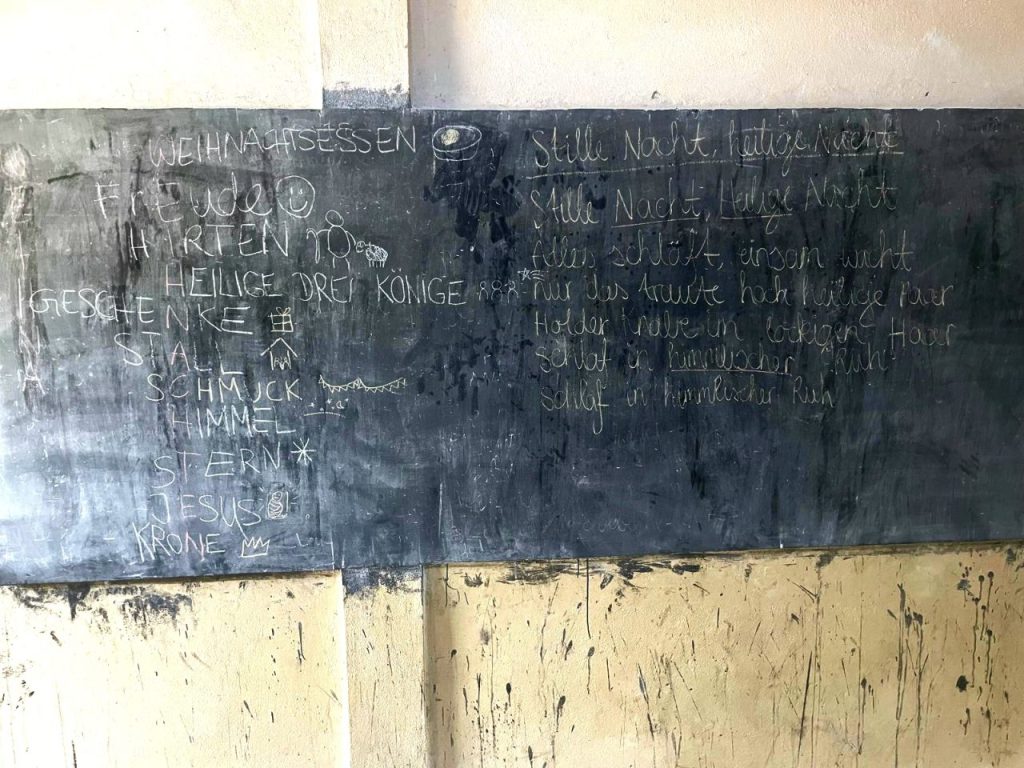 WEIHNACHTSESSEN
Freude
HIRTEN
HEILIGE DREI KÖNIGE
GESCHENKE
STALL
SCHMUCK
HIMMEL
STERN
JESUS
KRONE
Stille Nacht, heilige Nacht
Stille Nacht, Heilige Nacht
Alles schläft, einsam wacht
nur das traute hoch heilige Paar
Holder Knabe im lockigen Haar
Schlaf in himmlischer Ruh
Schlaf in himmlischer Ruh